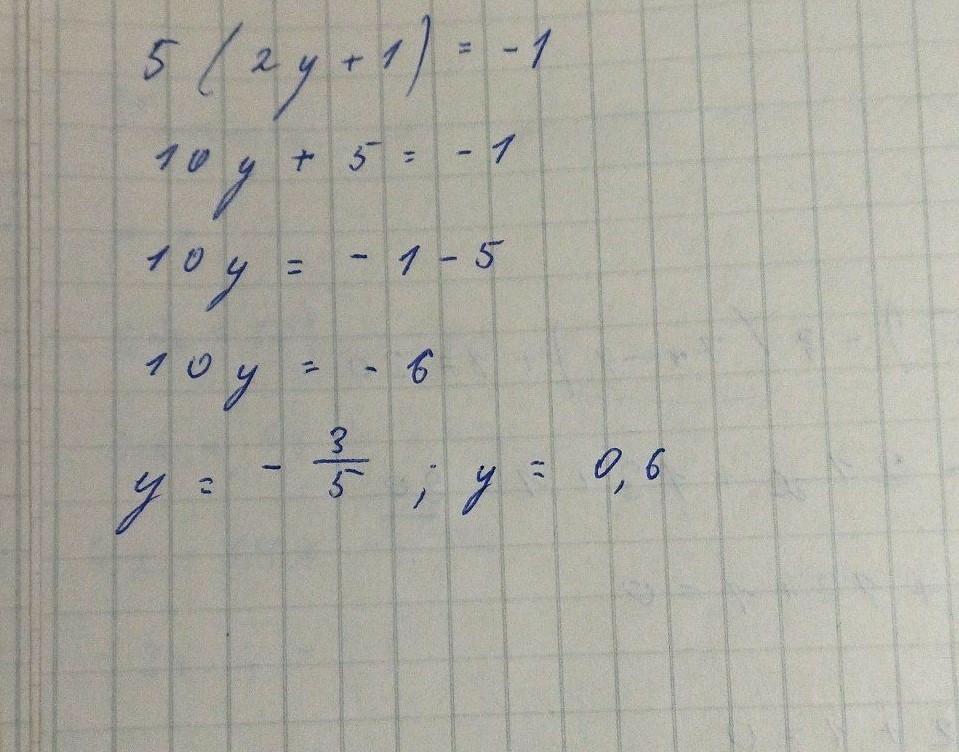 5 ( 2y + 1 ) = - 1
10y + 5 = - 1
10y = - 1 - 5
10y = - 6
y = - 3/5 ; y = 0,6